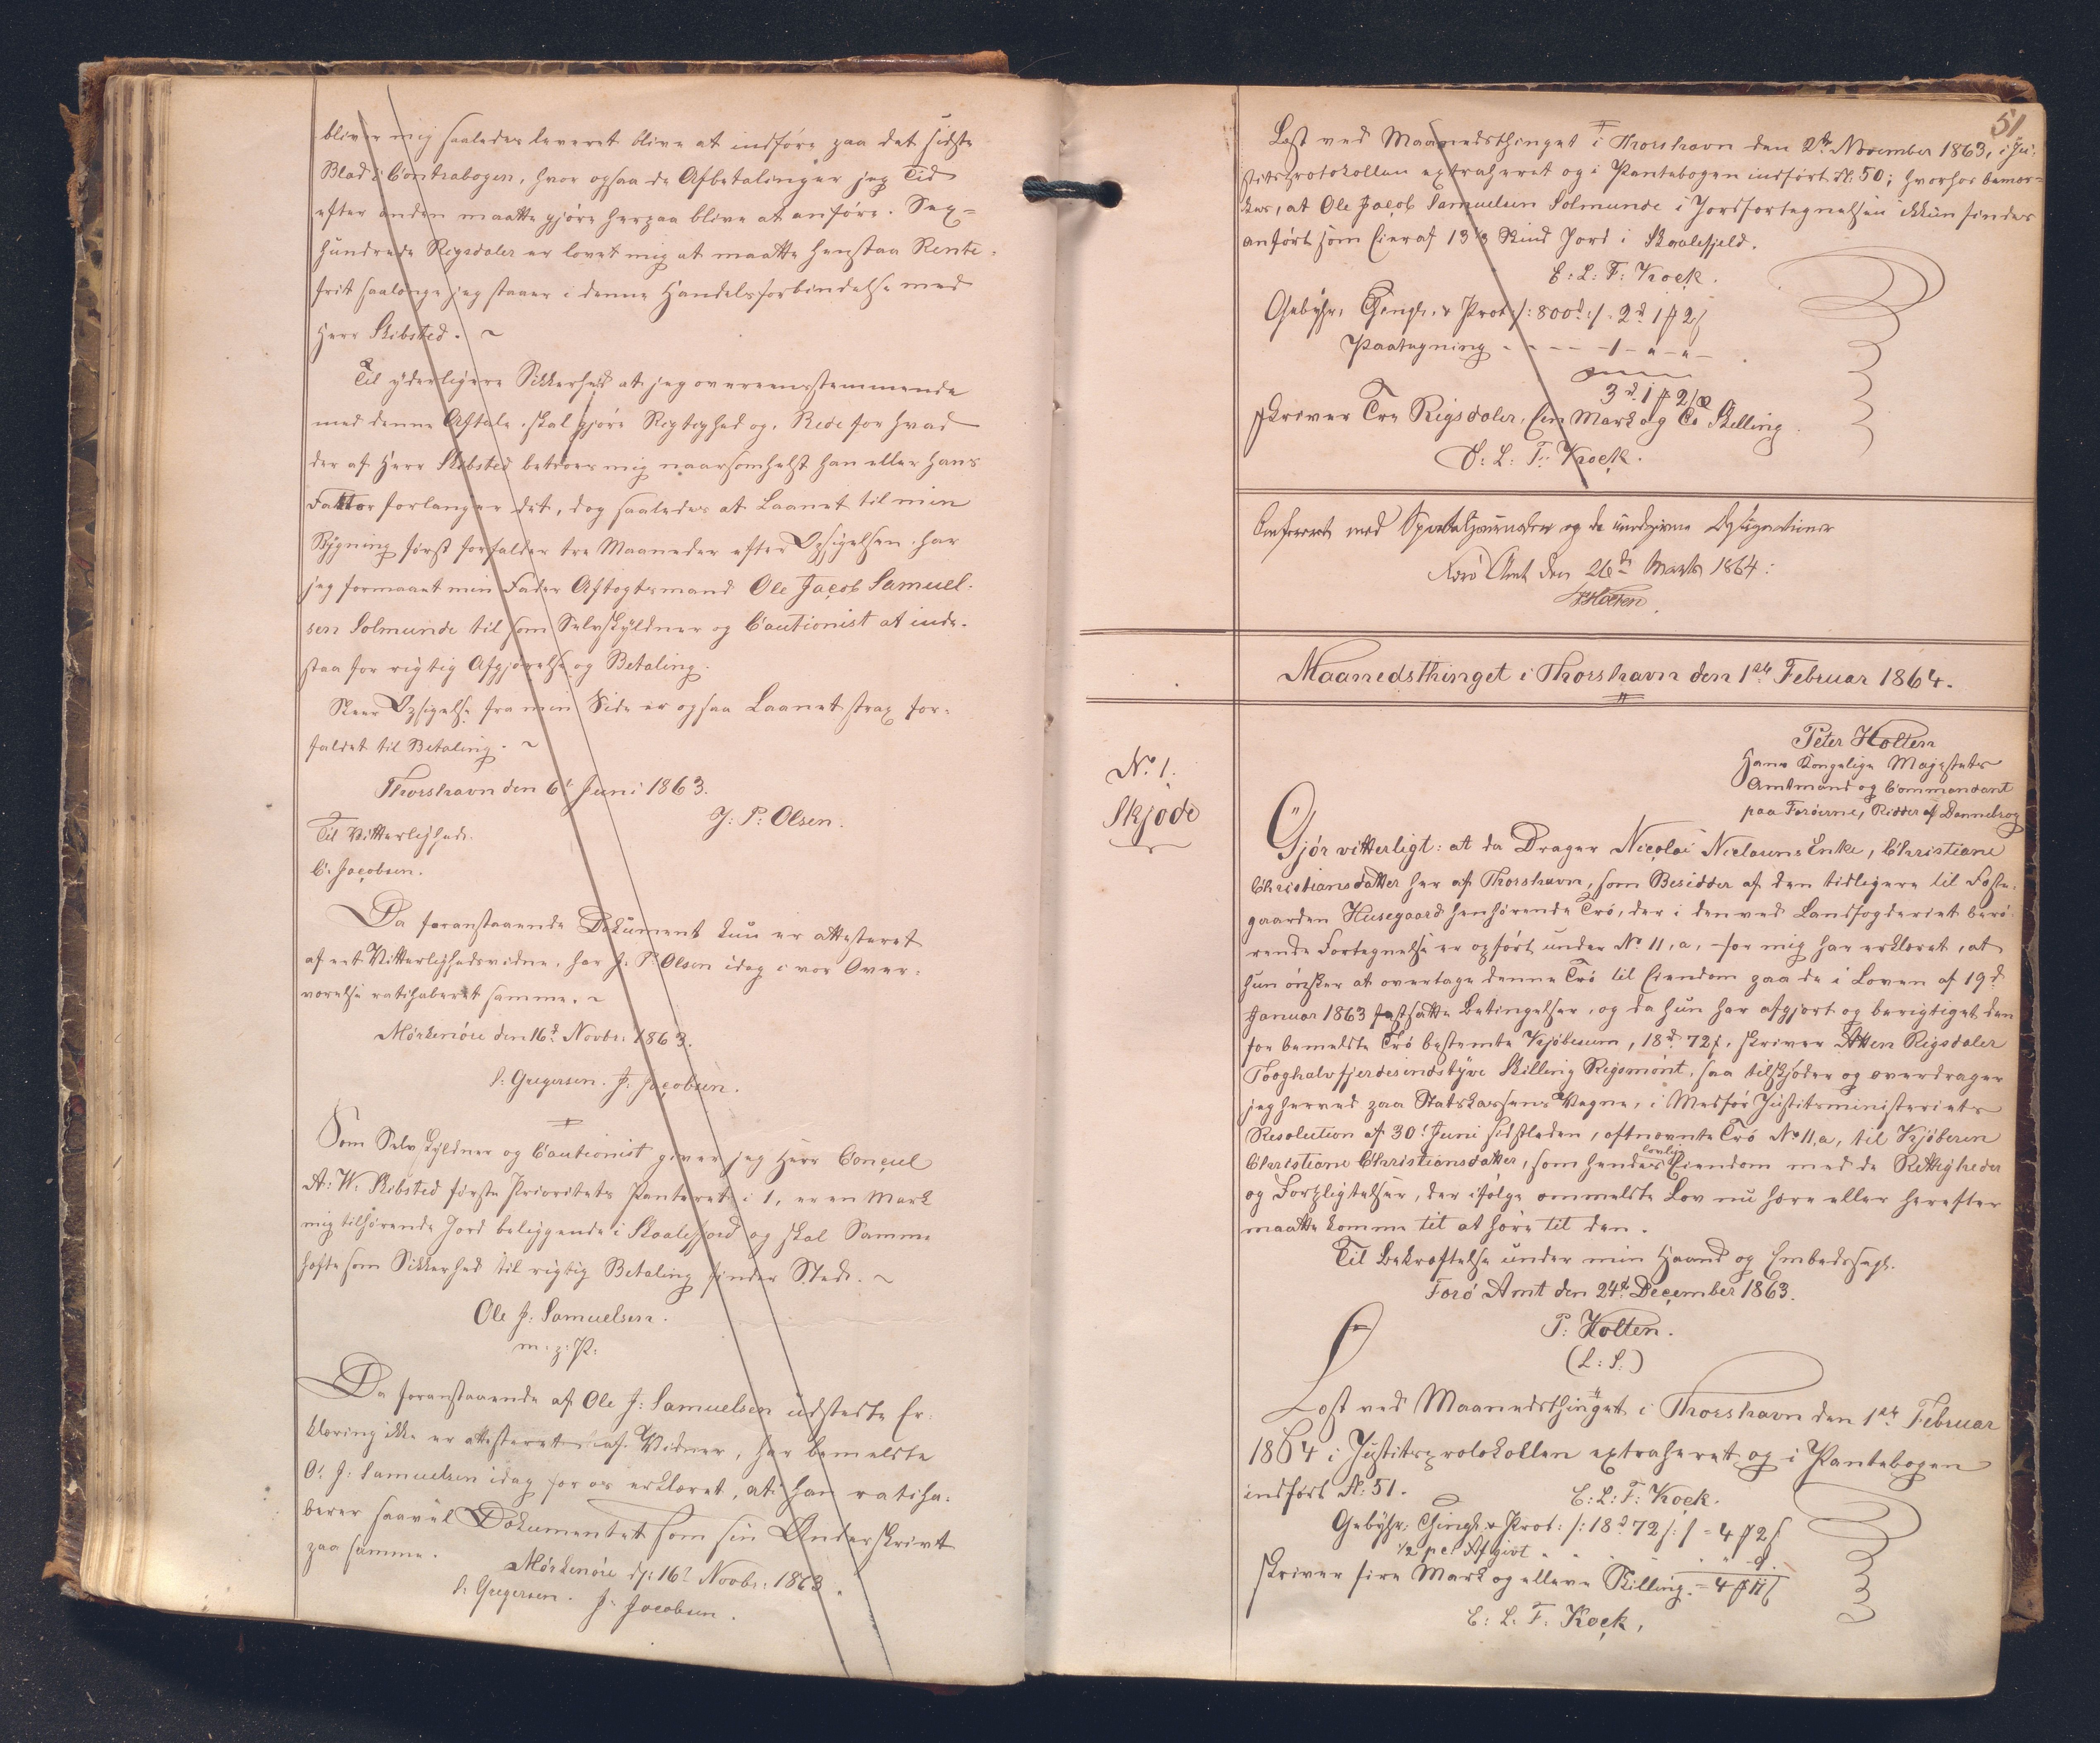 bliver mig saaledes leveret blive at indføre paa det sidste
Blad i Contrabogen, hvor ogsaa de Afbetalinger jeg Tid
efter anden maatte gjøre herpaa blive at anføre. Sex-
hundrede Rigsdaler er lovet mig at maatte henstaa Rente-
frit saalænge jeg staaer i denne Handelsforbindelse med
Herr Skibsted.
Til yderligere Sikkerhed at jeg overeensstemmende
med denne Aftale skal gjøre Rigtighed og Rede for hvad
der af Herr Skibsted betroes mig naarsomhelst han eller hans
Faktor forlanger det, dog saaledes at Laanet til min
Bygning først forfalder tre Maaneder efter Opsigelsen har
jeg formaaet min Fader Aftægtsmand Ole Jacob Samuel-
sen Solmunde til som Selvskyldner og Cautionist at inde-
staa for rigtig Afgjørelse og Betaling.
Skeer Opsigelse fra min Side er ogsaa Laanet strax for-
faldet til Betaling.
Thorshavn den 6t Juni 1863.
J: P: Olsen.
Til Vitterlighed:
C: Jacobsen.
Da foranstaaende Dokument kun er attesteret
af eet Vitterlighedsvidne, har J: P: Olsen idag i vor Over-
værelse ratihaberet samme.
Mørkenøre den 16d Novbr: 1863.
S: Gregersen. J: Jacobsen.
Som Selvskyldner og Cautionist giver jeg Herr Consul
A: W: Skibsted første Prioritets Panteret i 1, er en Mark
mig tilhørende Jord beliggende i Skaalefjord og skal Samme
hæfte som Sikkerhed til rigtig Betaling finder Sted.
Ole J: Samuelsen.
m: p: P:
Da foranstaaende af Ole J: Samuelsen udstedte Er-
klæring ikke er attesteret af Vidner, har bemeldte
O: J: Samuelsen idag for os erklæret, at han ratiha-
berer saavel Dokumentet som sin Underskrivt
paa samme.
Mørkenøre d: 16d Novbr: 1863.
S: Gregersen. J: Jacobsen.
51
Læst ved Maanedsthinget i Thorshavn den 2den November 1863, i Ju-
stitsprotokollen extraheret og i Pantebogen indført Fl. 50; hvorhos bemær-
kes, at Ole Jacob Samuelsen Solmunde i Jordfortegnelsen ikkun findes
anført som Eier af 13 1/3 Skind Jord i Skaalefjeld.
E: L: F: Kock.
Gebyhr: Thingl. & Prot: /: 800d :/ 2d 1 ₻ 2 ß
Paategning - - - - 1 - " - " -
3d 1 ₻ 2 ß
skriver Tre Rigsdaler, Een Mark og To Skilling.
E: L: F: Kock.
Confereret med Sporteljournalen og de Designationer
Færø Amt den 26de Marts 1864:
PHolten
Maanedsthinget i Thorshavn den 1ste Februar 1864.
No 1.
Skjøde
Peter Holten
Hans Kongelige Majestæts
Amtmand og Commandant
paa Færøerne, Ridder af Dannebrog
Gjør vitterligt: at da Drager Nicolai Niclasens Enke, Christiane
Christiansdatter her af Thorshavn, som Besidder af den tidligere til Fæste-
gaarden Husegaard henhørende Trø, der i den ved Landfogderiet bero-
rende Fortegnelse er opført under No 11, a, for mig har erklæret, at
hun ønsker at overtage denne Trø til Eiendom paa de i Loven af 19d
Januar 1863 fastsatte Betingelser, og da hun har afgjort og berigtiget den
for bemeldte Trø bestemte Kjøbesum, 18d 72 ß, skriver Atten Rigsdaler
Tooghalvfjerdesindstyve Skilling Rigsmønt, saa tilskjøder og overdrager
jeg herved paa Statskassens Vegne, i Medfør Justitsministeriets
Resolution af 30t Juni sidstleden, oftnævnte Trø No 11, a, til Kjøberen
Christiane Christiansdatter, som hendes lovlige Eiendom med de Rettigheder
og Forpligtelser, der ifølge ommeldte Lov nu høre eller herefter
maatte komme til at høre til den.
Til Bekræftelse under min Haand og Embedssegl.
Færø Amt den 24d December 1863.
P: Holten.
(L: S:)
Læst ved Maanedsthinget i Thorshavn den 1ste Februar
1864 i Justitsprotokollen extraheret og i Pantebogen
indført Fl: 51.
E: L: F: Kock.
Gebyhr: Thingl. & Prot: /: 18d 72 ß :/ = 4 ₻ 2 ß
1/2 pCt Afgivt " " 9
skriver fire Mark og elleve Skilling. = 4 ₻ 11 ß
E: L: F: Kock,